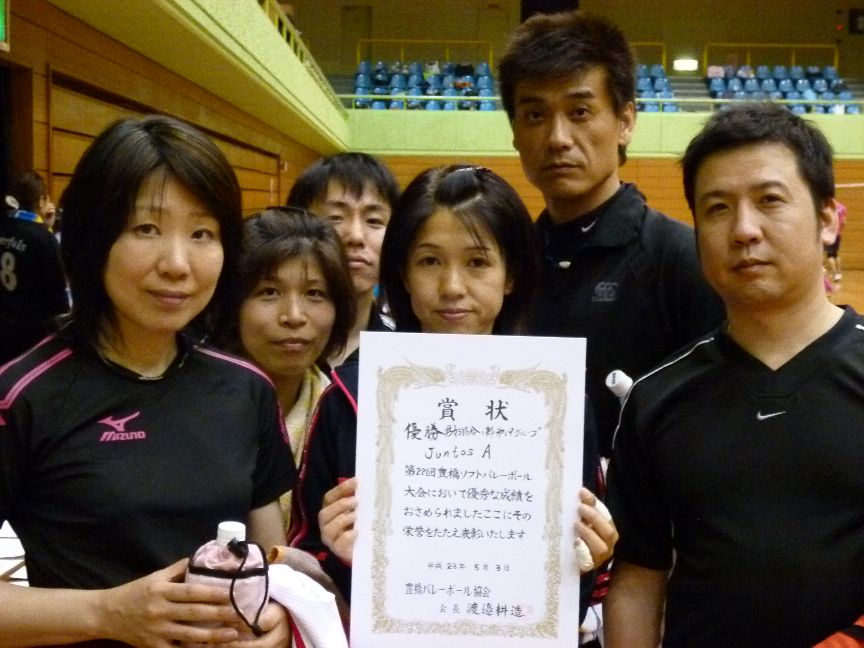 賞状
優勝
Juntos A
第22回豊橋ソフトバレーボール
大会において優秀な成績を
おさめられましたここにその
栄誉をたたえ表彰いたします
平成23年5月3日
豊橋バレーボール協会
会長 渡邉耕造
MIZUNO
8